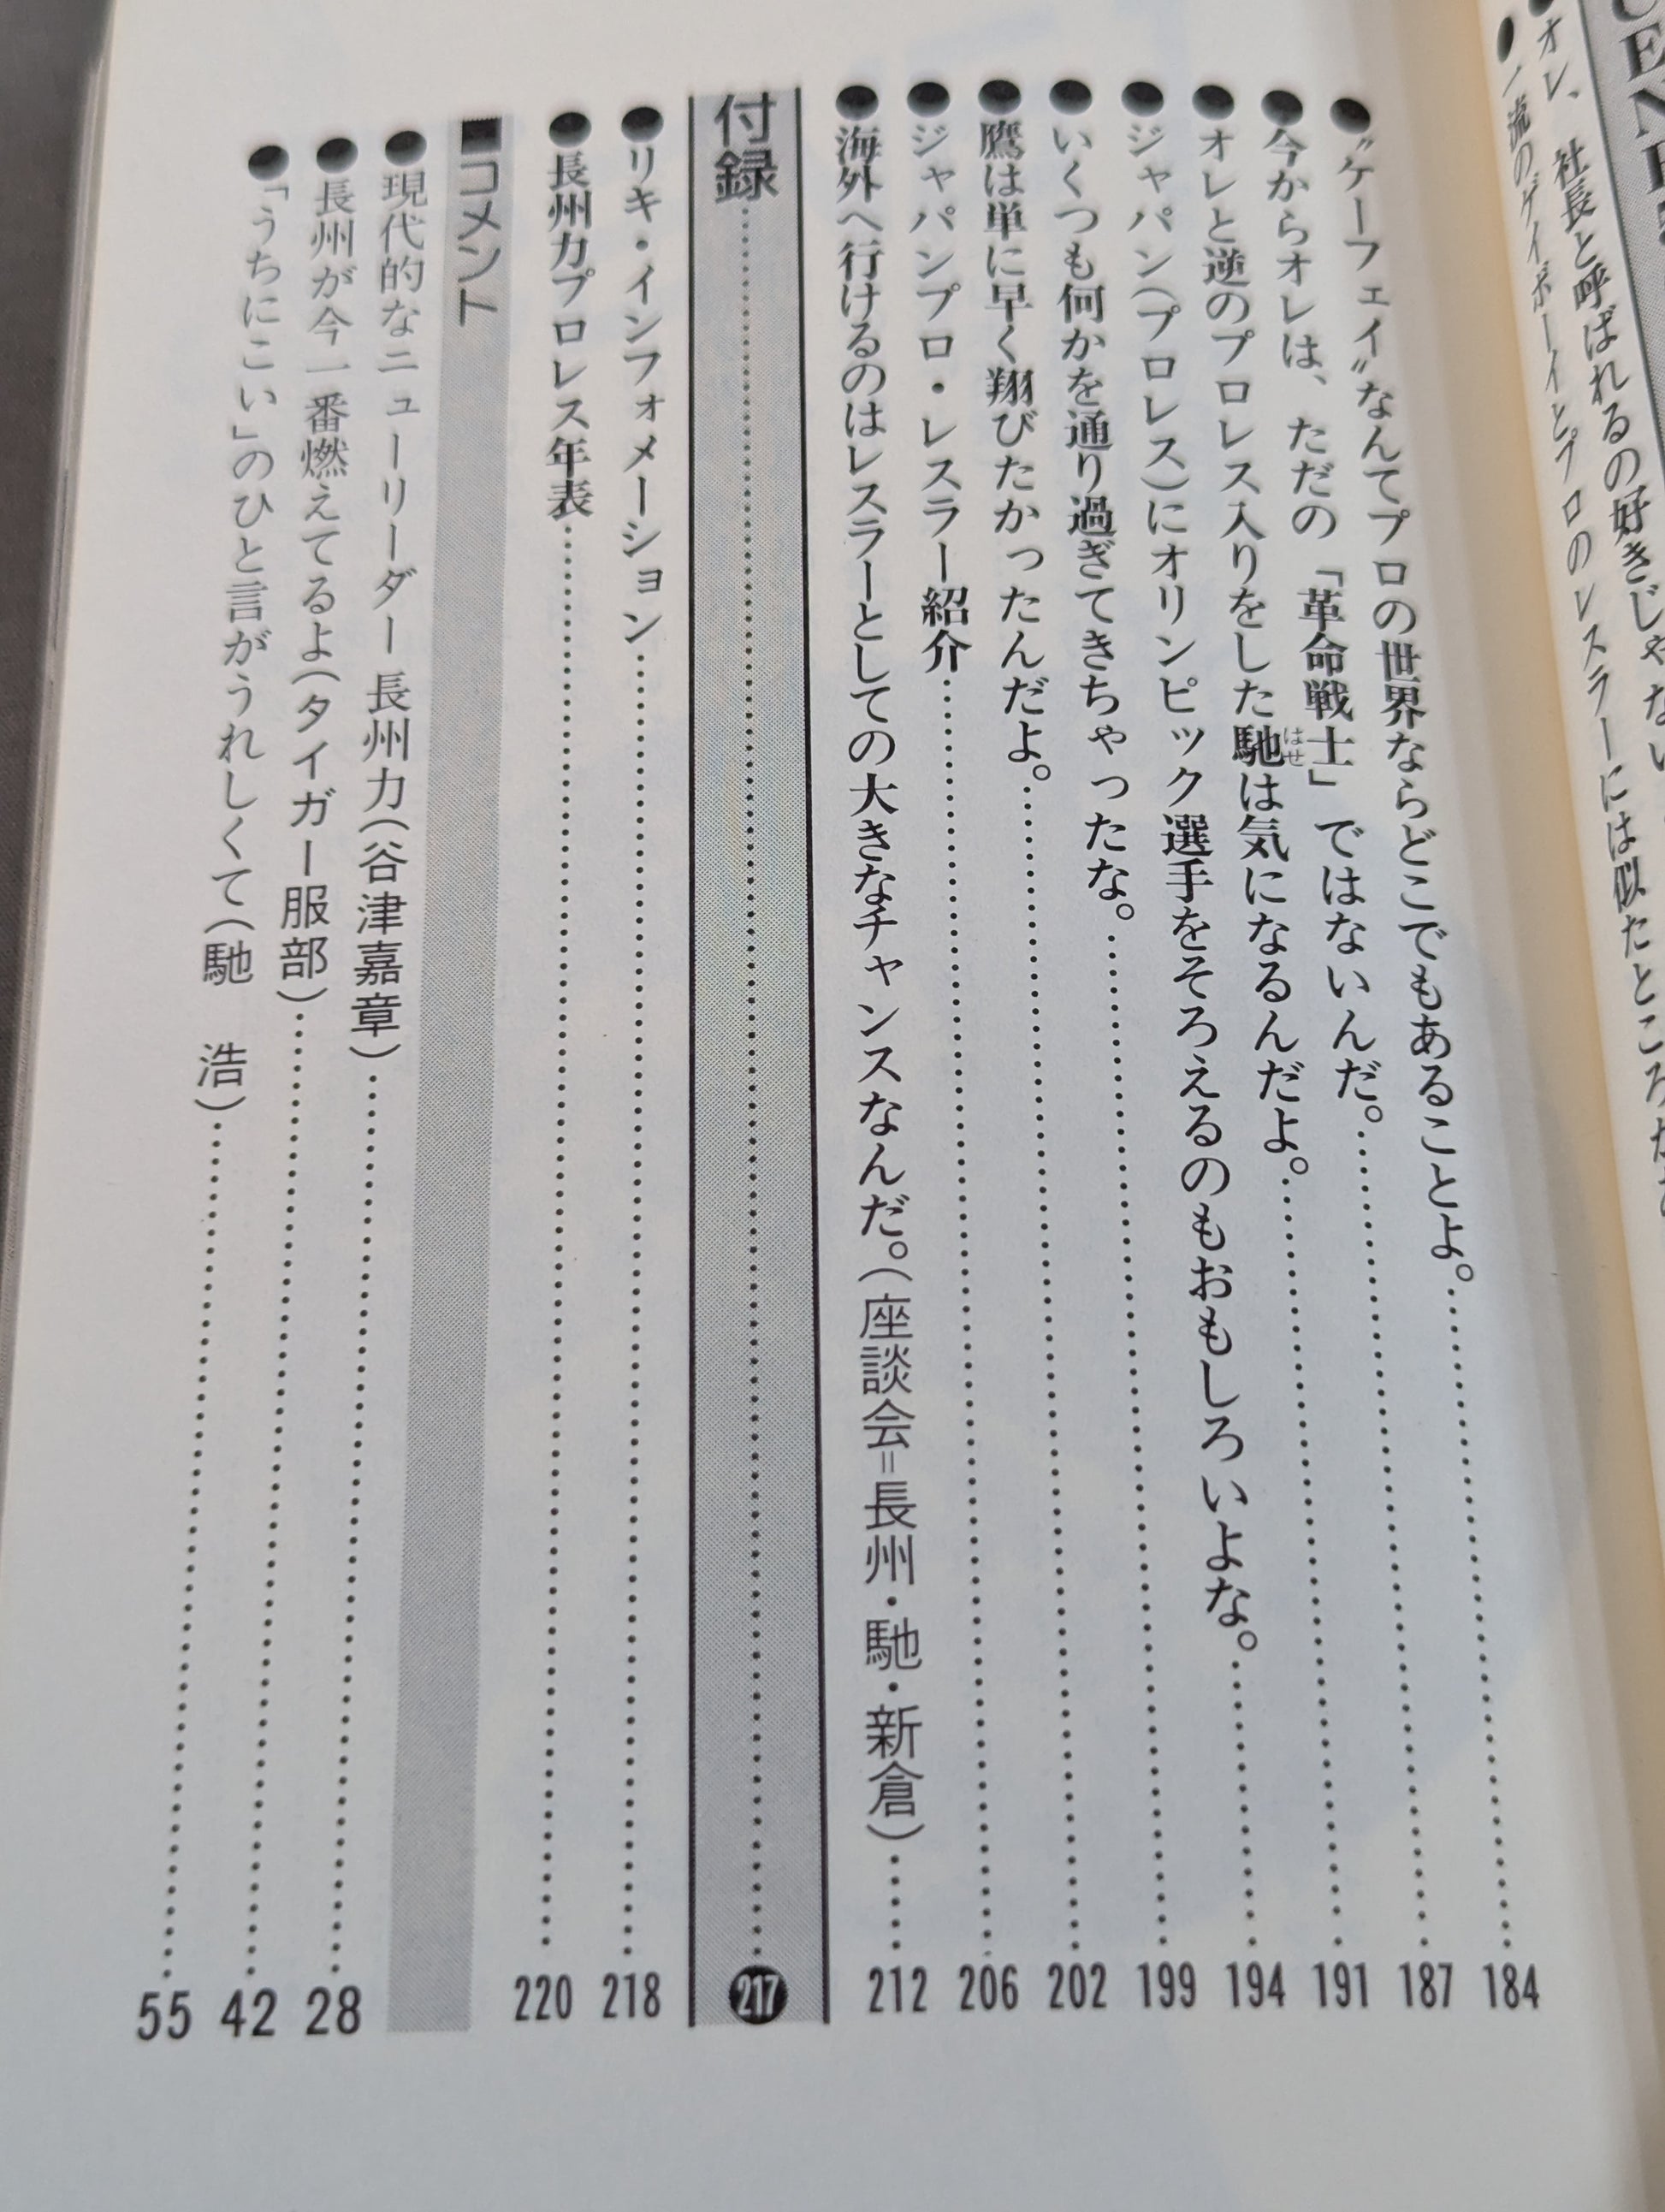 オレ、社長と呼ばれるの好きじゃない
一流のゲイボーイとプロのレスラーには似たところが
●〝ケーフェイ〟なんてプロの世界ならどこでもあることよ。……184
●今からオレは、ただの「革命戦士」ではないんだ。……187
●オレと逆のプロレス入りをした馳はせは気になるんだよ。……191
●ジャパン(プロレス)にオリンピック選手をそろえるのもおもしろいよな。……194
●いくつも何かを通り過ぎてきちゃったな。……199
●鷹は単に早く翔びたかったんだよ。……202
●ジャパンプロ・レスラー紹介……206
●海外へ行けるのはレスラーとしての大きなチャンスなんだ。(座談会=長州・馳・新倉)……212
付録……217
●リキ・インフォメーション……218
●長州力プロレス年表……220
■コメント
●現代的なニューリーダー 長州力(谷津嘉章)……28
●長州が今一番燃えてるよ(タイガー服部)……42
●「うちにこい」のひと言がうれしくて(馳 浩)……55